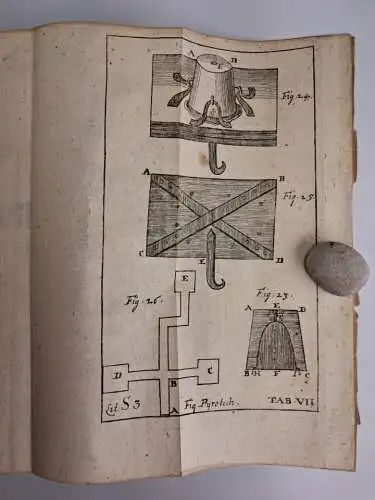 A D
E
Fig. 24.
A B
Fig. 25.
C E D
E
Fig. 26.
Fig. 23.
A E D
D C
B
B H F I C
Lit S 3 Fig Pyrotech. TAB VII
A